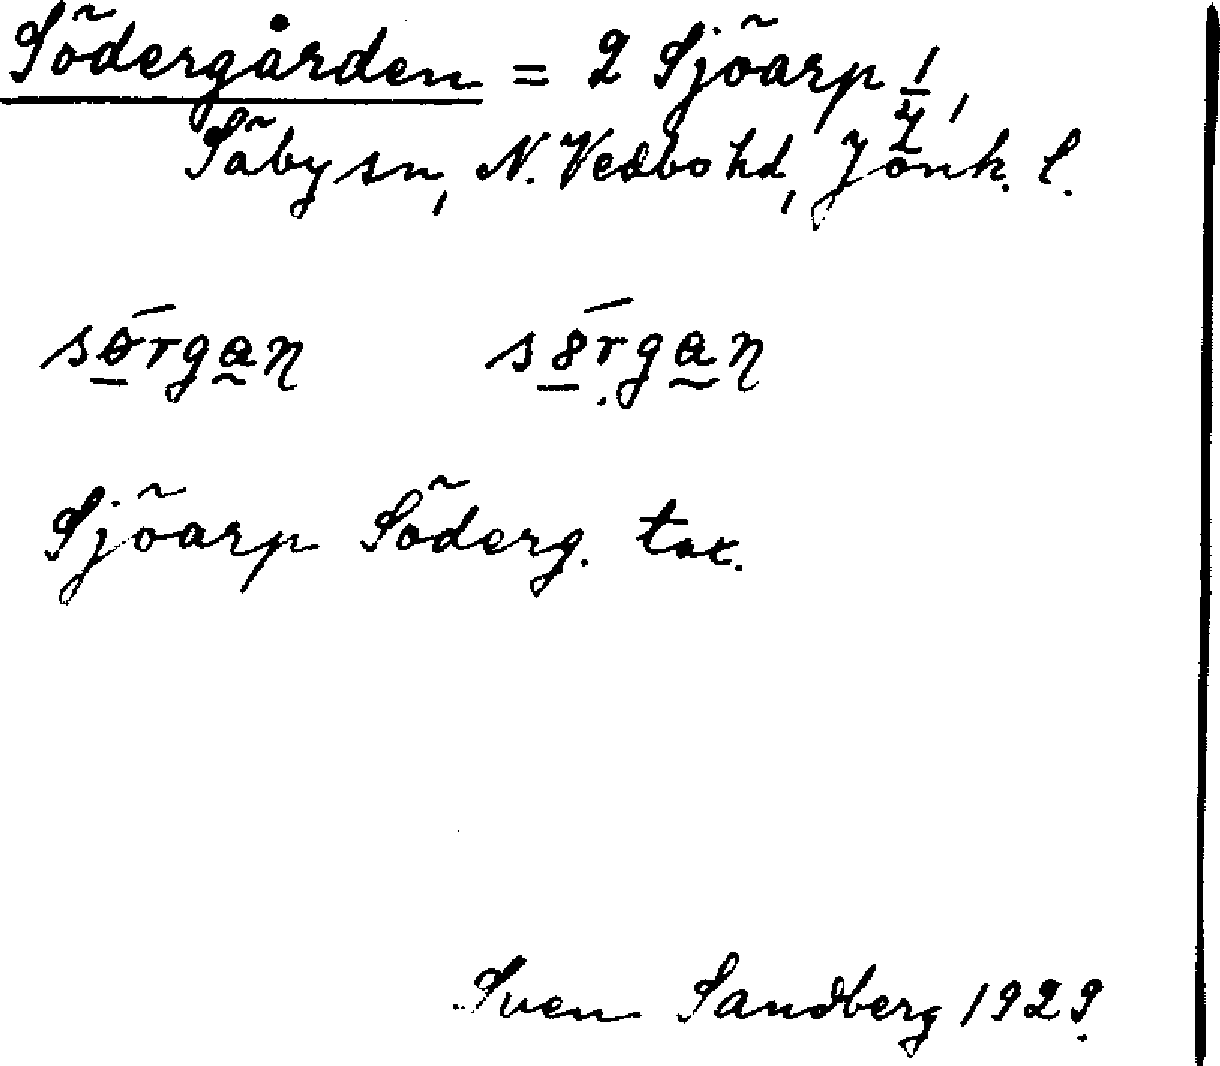 Södergården = 2 Sjöarp 1/4,
Säby sn, N. Vedbo hd, Jönk. l.
sörgan sörgan
Sjöarp Söderg. tax.
Sven Sandberg 1929.